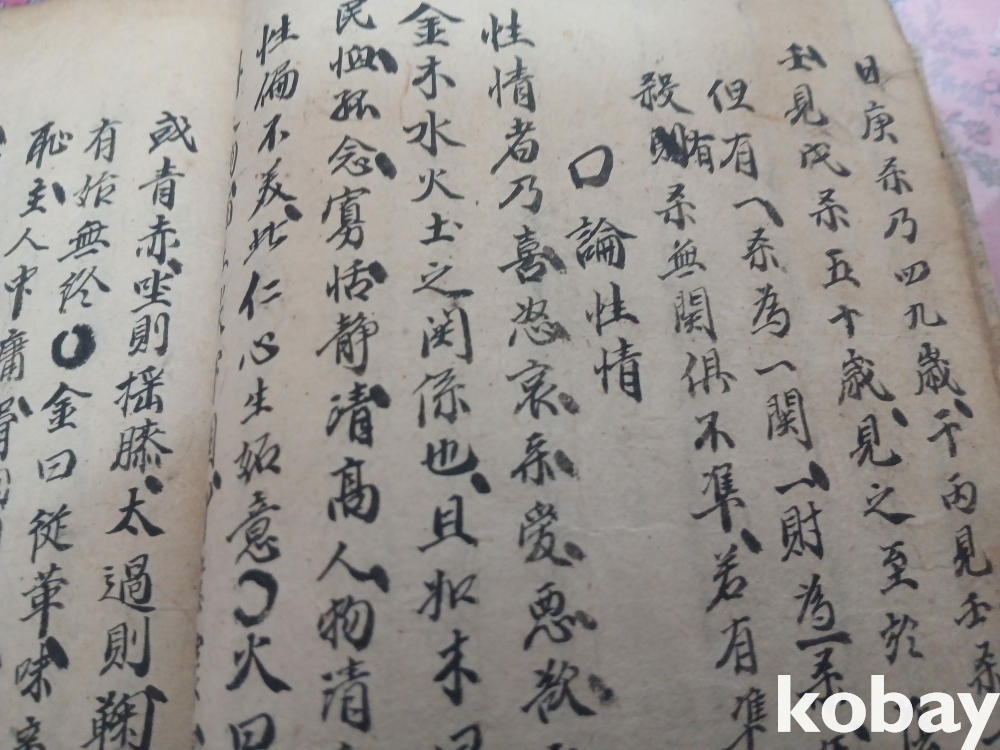 日庚杀乃四九歲、干丙見壬杀
壬見戊杀五十歲、見之至於
但有一杀為一関、一財為一杀
殺則有杀無関俱不準、若有準
○論性情
性情者乃喜怒哀楽愛悪欲
金木水火土之関係也、且如木曰
民恤孤念寡恬静清高人物清
性偏不美、此仁心生妬意○火曰
或青赤、坐則揺膝、太過則鞠
有始無終○金曰從革味辛
恥、主人中庸
kobay